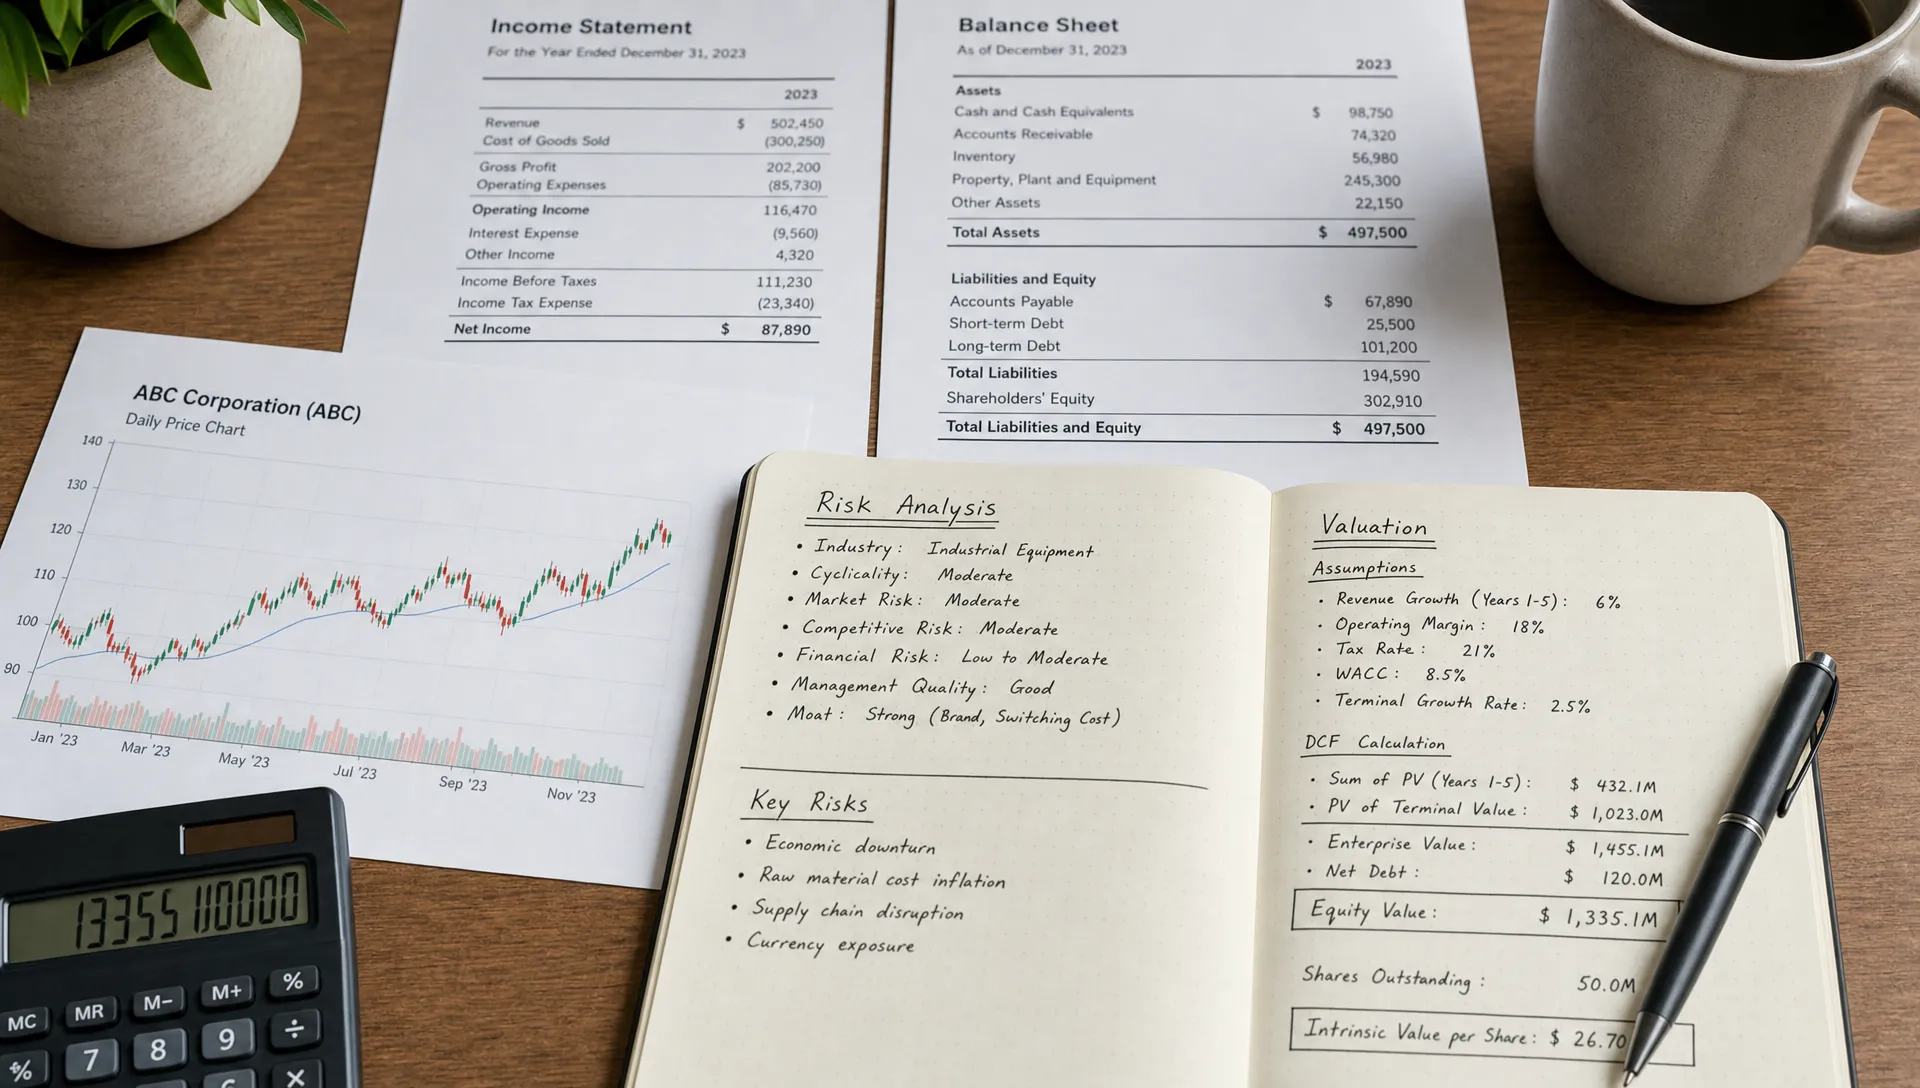 Income Statement
For the Year Ended December 31, 2023
2023
Revenue $ 502,450
Cost of Goods Sold (300,250)
Gross Profit 202,200
Operating Expenses (85,730)
Operating Income 116,470
Interest Expense (9,560)
Other Income 4,320
Income Before Taxes 111,230
Income Tax Expense (23,340)
Net Income $ 87,890
Balance Sheet
As of December 31, 2023
2023
Assets
Cash and Cash Equivalents $ 98,750
Accounts Receivable 74,320
Inventory 56,980
Property, Plant and Equipment 245,300
Other Assets 22,150
Total Assets $ 497,500
Liabilities and Equity
Accounts Payable $ 67,890
Short-term Debt 25,500
Long-term Debt 101,200
Total Liabilities 194,590
Shareholders' Equity 302,910
Total Liabilities and Equity $ 497,500
ABC Corporation (ABC)
Daily Price Chart
140
130
120
110
100
90
Jan '23 Mar '23 May '23 Jul '23 Sep '23 Nov '23
Risk Analysis
• Industry: Industrial Equipment
• Cyclicality: Moderate
• Market Risk: Moderate
• Competitive Risk: Moderate
• Financial Risk: Low to Moderate
• Management Quality: Good
• Moat: Strong (Brand, Switching Cost)
Key Risks
• Economic downturn
• Raw material cost inflation
• Supply chain disruption
• Currency exposure
Valuation
Assumptions
• Revenue Growth (Years 1-5): 6%
• Operating Margin: 18%
• Tax Rate: 21%
• WACC: 8.5%
• Terminal Growth Rate: 2.5%
DCF Calculation
• Sum of PV (Years 1-5): $ 432.1M
• PV of Terminal Value: $ 1,023.0M
• Enterprise Value: $ 1,455.1M
• Net Debt: $ 120.0M
Equity Value: $ 1,335.1M
Shares Outstanding: 50.0M
Intrinsic Value per Share: $ 26.70
MC MR M− M+ %
7 8 9 ÷
×